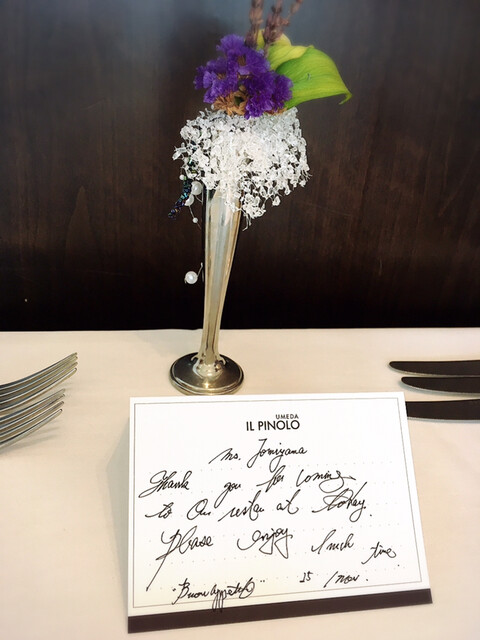 UMEDA
IL PINOLO
Ms. Tomiyama
Thank you for coming
to Our at today.
Please enjoy lunch time
"Buon appetito" 25 / Nov.